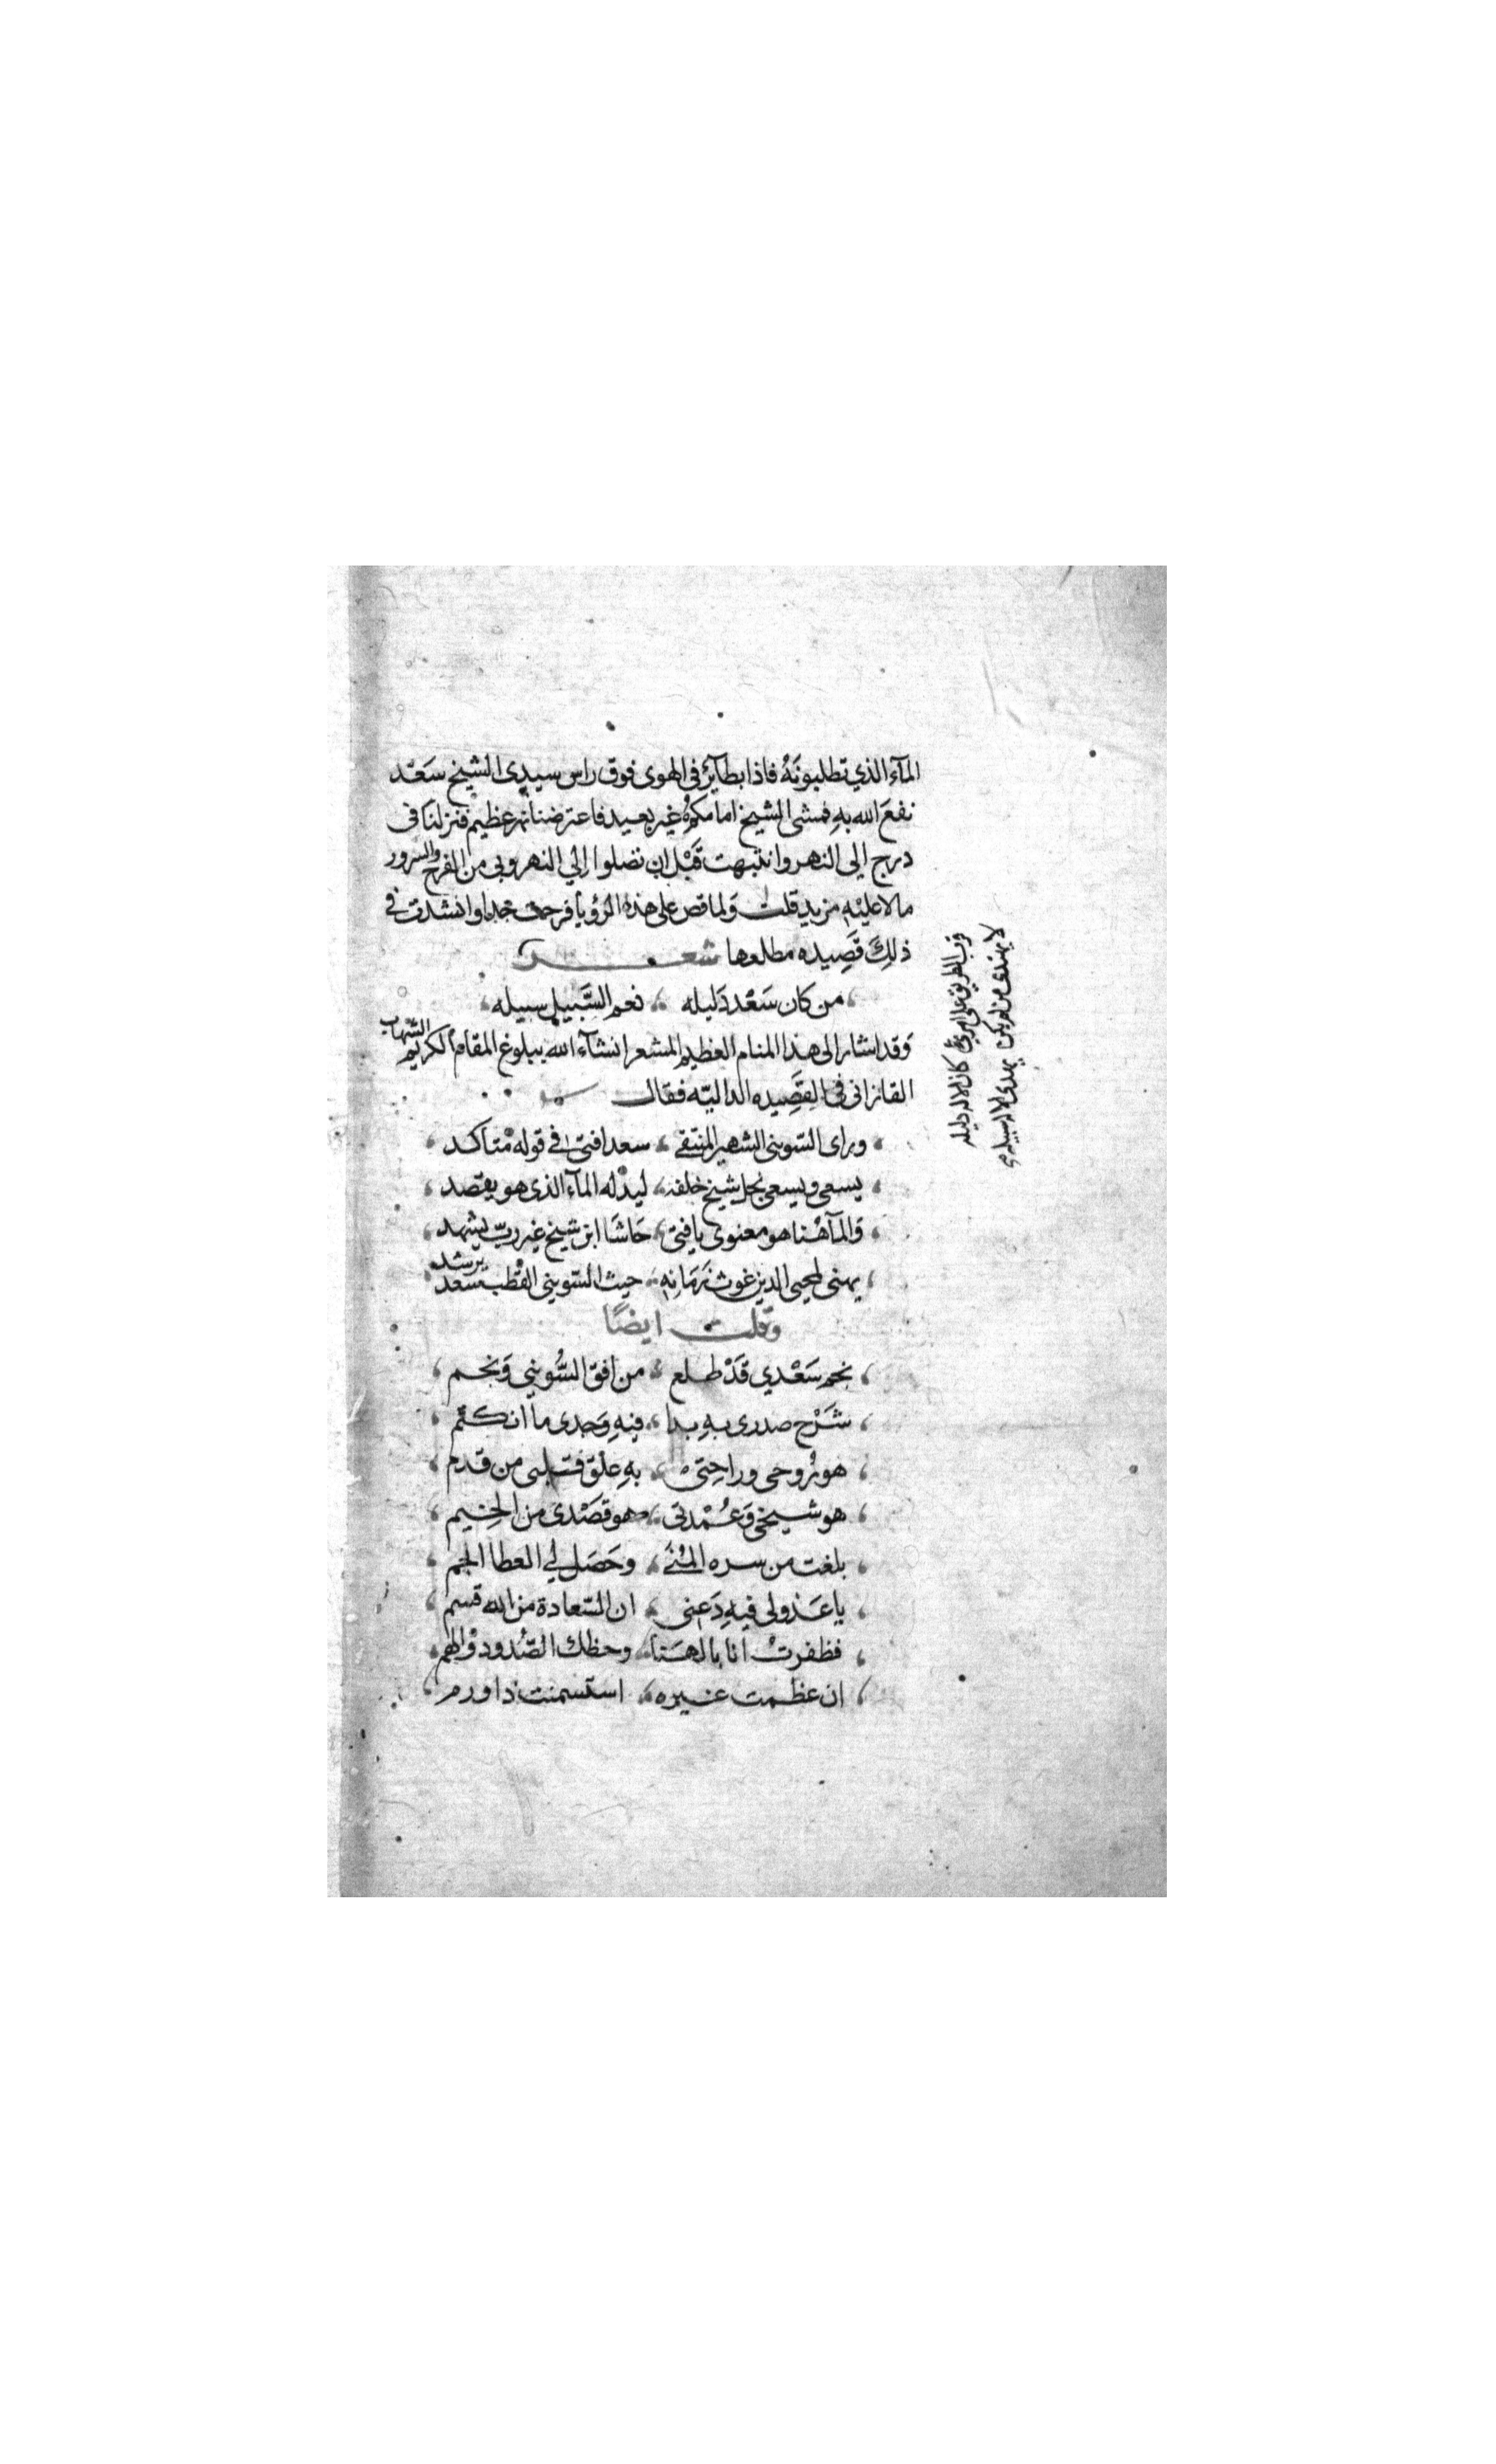 المآء الذي تطلبونه فاذا بطآئر فى الهوى فوق راس سيدى الشيخ سَعْد
نفع الله به فمشى الشيخ امامكم غير بعيد فاعترضنا نهر عظيم فنزلنا فى
درج الى النهر وانتبهت قَبْل ان تصلوا الي النهر وبى من الفرح والسرور
مالا عليْه مزيد قلت ولما قص على هذه الرؤيا فرحت جدا وانشدت في
ذلك قَصِيده مطلعها شعر
من كان سَعْد دَليله ، نعم السَّبيل سبيله
وقد اشار الى هذا المنام العظيم المشعر انشآء الله ببلوغ المقام الكريم الشهاب
القازانى فى القصِيده الداليّه فقال
وراى السّوينى الشهير المنتقى ، سعدا فتى في قوله متاكد
يسعى ويسعى نجل شيخ خلفه ، ليدله المآء الذى هو يقصد
والمآ هُنا هو معنوى يافتى ، حَاشَا ابن شيخ غير ربّ يشهد
يهنى لمحيى الدين غوث زمَانه ، حيث السّويني القُطب سعد يرشد
وقلت ايضًا
نجم سَعْدي قَدْ طلع ، من افق السُّويني وَنجم
شَرْح صدرى بهِ بدا ، فيهِ وَجدى ما انكتم
هو رُوحى وراحِتى ، بهِ علق قلبى من قدم
هو شيخى وَعُمْدتى ، وهو قصَدى من الخيم
بلغت من سره المُنَى ، وحَصَل لي العطا الجم
يا عَذولى فيهِ دَعنى ، ان السّعادة من الله قسم
فظفرتْ انا بالهَنا ، وحظك الصّدود والهم
ان عظمت غيره ، استسمنت ذا ورم
قرب الطريق على امرئ كان الاله دليله
لا يهتدى من لم يكن يهدى الاله سبيله